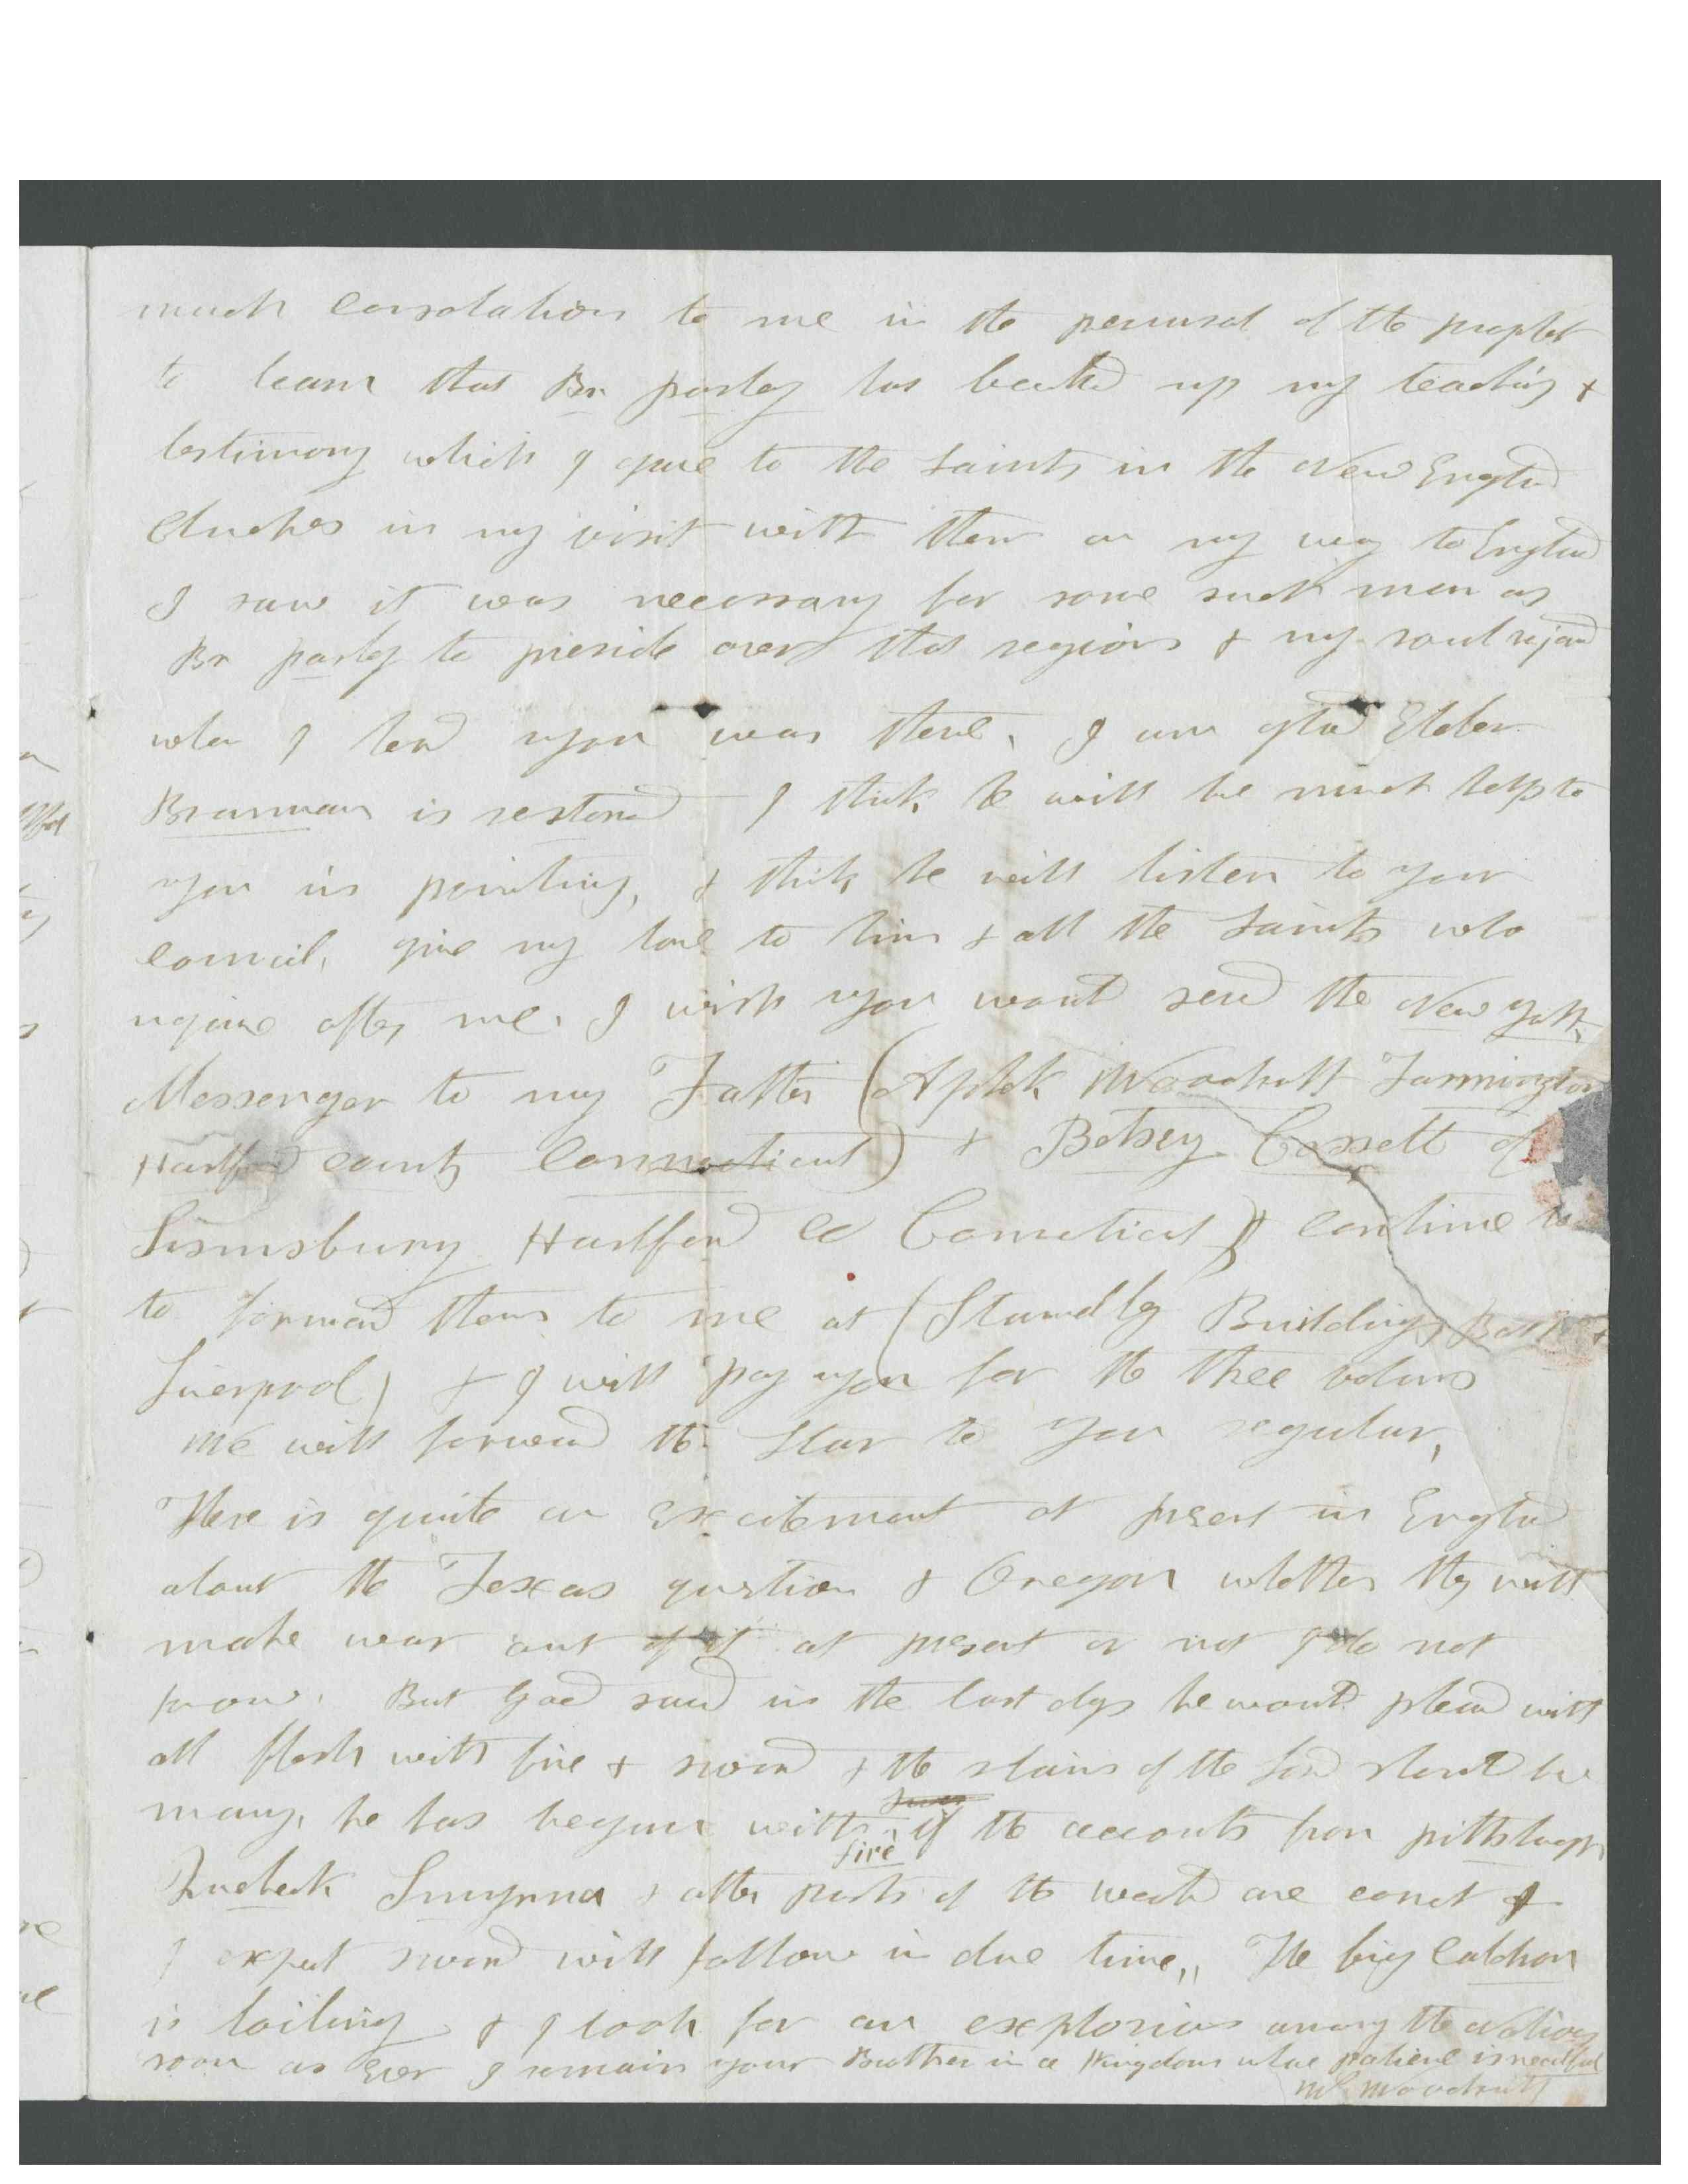 much consolation to me in the perusal of the prophet
to learn that Br. parley has backed up my teaching &
testimony which I gave to the Saints in the New Englad
Chuches in my visit with them on my way to Englad
I saw it was necessary for some such man as
Br parley to preside over that region & my soul rejoiced
when I heard you was there, I am glad Elder
Brannan is restored I think he will be much help to
you in printing, & think he will listen to your
council, give my love to him & all the Saints who
inquire after me. I wish you would send the New York
Messenger to my Father (Aphek Woodruff Farmington
Hartford county Connecticut) & Betsey Cossett of
Simsbury Hartford Co Connecticut) & continue to
to forward them to me at (Standly Buildings Bath St
Liverpool) & I will pay you for the three volums
We will forward the Star to you regular,
There is quite an excitement at present in Englad
about the Texas question & Oregon whether they will
make war out of it at present or not I do not
know. But God said in the last days he would plead with
all flesh with fire & sword & the slain of the Lord should be
many, he has begun with if the accounts from pittsburgh
fire
Quebeck Smyrna & other parts of the world are correct &
I expect sword will follow in due time,, The big Caldron
is boiling & I look for an explosion among the Nations
soon as Ever I remain your Brother in a Kingdom whare patience is needful
W. Woodruff